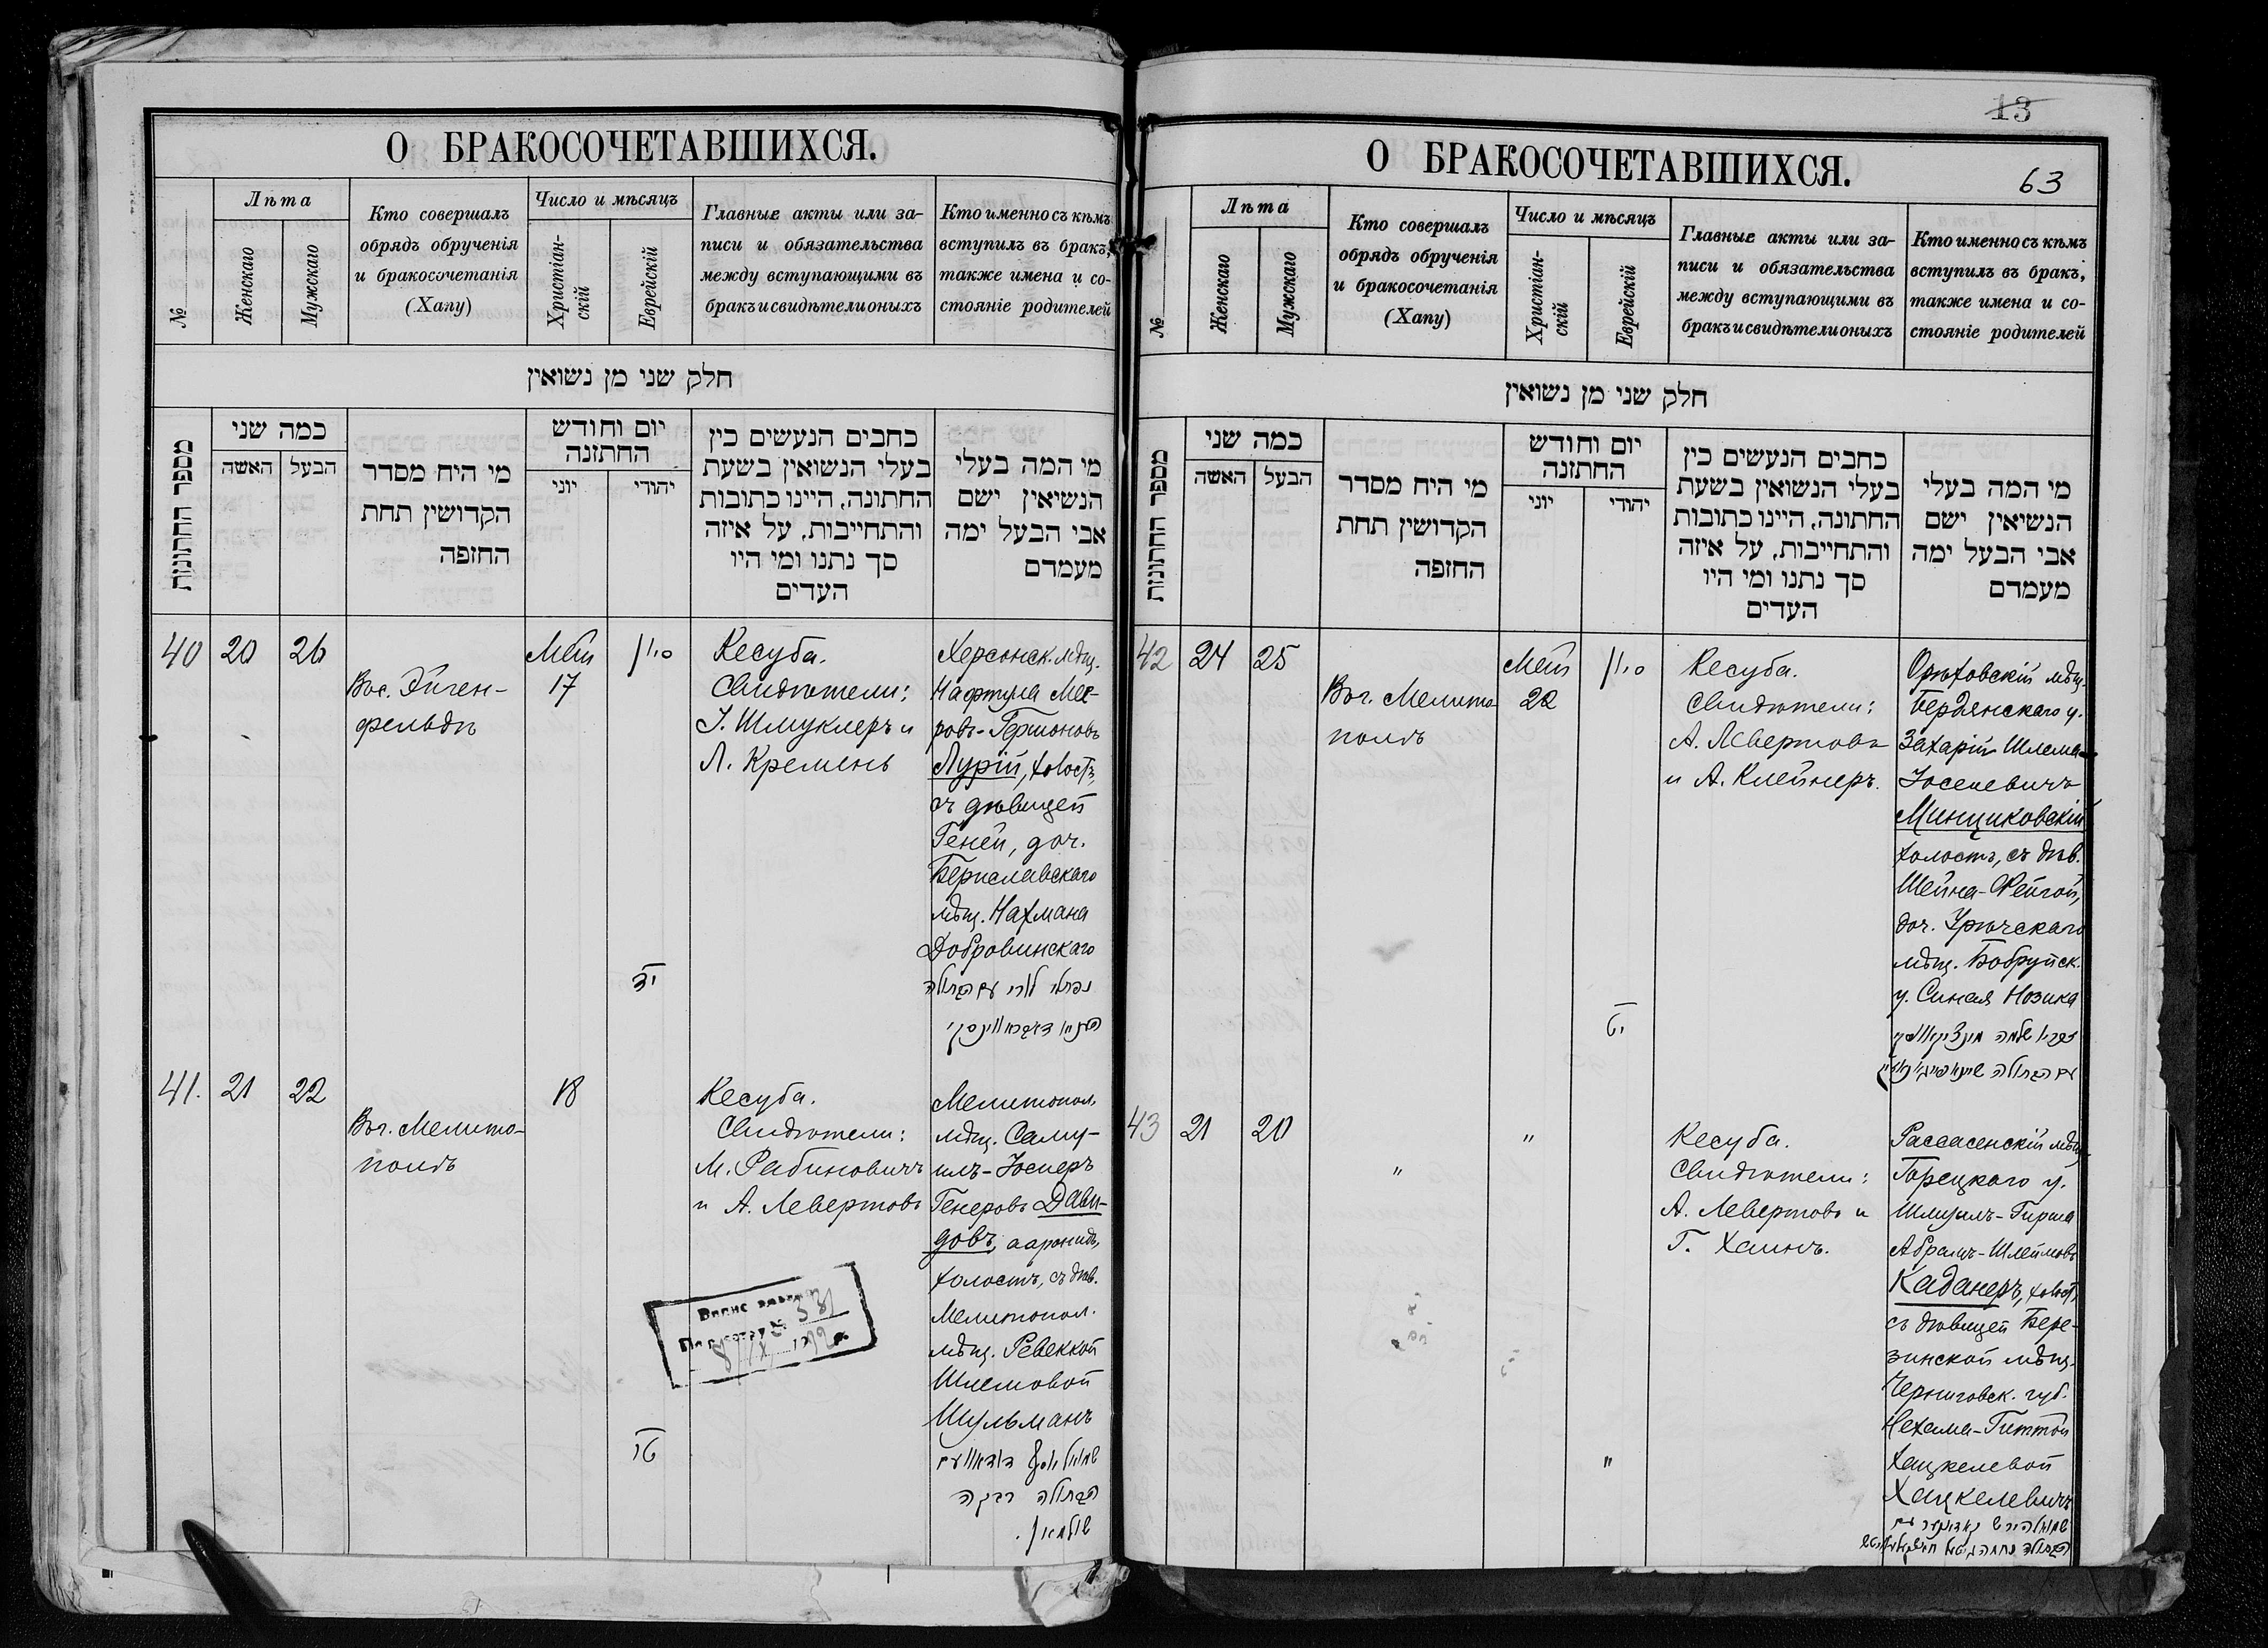 О БРАКОСОЧЕТАВШИХСЯ.
№
Лѣта
Женскаго
Мужскаго
Кто совершалъ
обрядъ обрученія
и бракосочетанія
(Хапу)
Число и мѣсяцъ
Христіан-
скій
Еврейскій
Главные акты или за-
писи и обязательства
между вступающими въ
бракъ и свидѣтели оныхъ
Кто именно съ кѣмъ
вступилъ въ бракъ,
также имена и со-
стояніе родителей
חלק שני מן נשואין
מספר החתונות
כמה שני
האשה
הבעל
מי היח מסדר
הקדושין תחת
החופה
יום וחודש
החתונה
יוני
יהודי
כחבים הנעשים כין
בעלי הנשואין בשעת
החתונה, היינו כתובות
והתחייבות, על איזה
סך נתנו ומי היו
העדים
מי המה בעלי
הנשיאין ישם
אבי הבעל ימה
מעמדם
40
20
26
Вос. Эйген-
фельдъ
Мей
17
סיון
יד
Кесуба.
Свидѣтели:
І. Шмуклеръ и
Л. Кремень
Херсонск. мѣщ.
Нафтула Мее-
ровъ-Гершоновъ
Лурій, холостъ,
съ дѣвицей
Геней, доч.
Бериславскаго
мѣщ. Нахмана
Добровинскаго
41.
21
22
Воч. Мелито-
полъ
18
טו
Кесуба.
Свидѣтели:
М. Рабиновичъ
и А. Левертовъ
Мелитопол.
мѣщ. Саму-
илъ-Іосперъ
Генеровъ Дави-
довъ, ааронидъ,
холостъ, съ дѣв.
Мелитопол.
мѣщ. Ревеккой
Шлемовой
Шульманъ
שמואל יוסף דוידאוו עם
הבתולה רבקה
שולמאן.
13
О БРАКОСОЧЕТАВШИХСЯ.
63
№
Лѣта
Женскаго
Мужскаго
Кто совершалъ
обрядъ обрученія
и бракосочетанія
(Хапу)
Число и мѣсяцъ
Христіан-
скій
Еврейскій
Главные акты или за-
писи и обязательства
между вступающими въ
бракъ и свидѣтели оныхъ
Кто именно съ кѣмъ
вступилъ въ бракъ,
также имена и со-
стояніе родителей
חלק שני מן נשואין
מספר החתונות
כמה שני
האשה
הבעל
מי היח מסדר
הקדושין תחת
החופה
יום וחודש
החתונה
יוני
יהודי
כחבים הנעשים כין
בעלי הנשואין בשעת
החתונה, היינו כתובות
והתחייבות, על איזה
סך נתנו ומי היו
העדים
מי המה בעלי
הנשיאין ישם
אבי הבעל ימה
מעמדם
42
24
25
Воч. Мелито
полъ
Мей
22
סיון
יט
Кесуба.
Свидѣтели:
А. Левертовъ
и А. Клейнеръ.
Орѣховскій мѣщ.
Бердянскаго у.
Захарій Шлема
Іоселевичъ
Минциковскій
холостъ, съ дѣв.
Шейна-Фейгой,
доч. Уречскаго
мѣщ. Бобруйск.
у. Синая Нозика
43
21
20
"
"
"
Кесуба.
Свидѣтели:
А. Левертовъ и
Г. Хаинъ.
Рассасенскій мѣщ.
Горецкаго у.
Шмуилъ-Гирша
Абрамъ-Шлеймовъ
Каданеръ, холост,
съ дѣвицей Бере-
зинской мѣщ.
Черниговск. губ.
Нехама-Гиттой
Хацкелевой
Хацкелевичъ